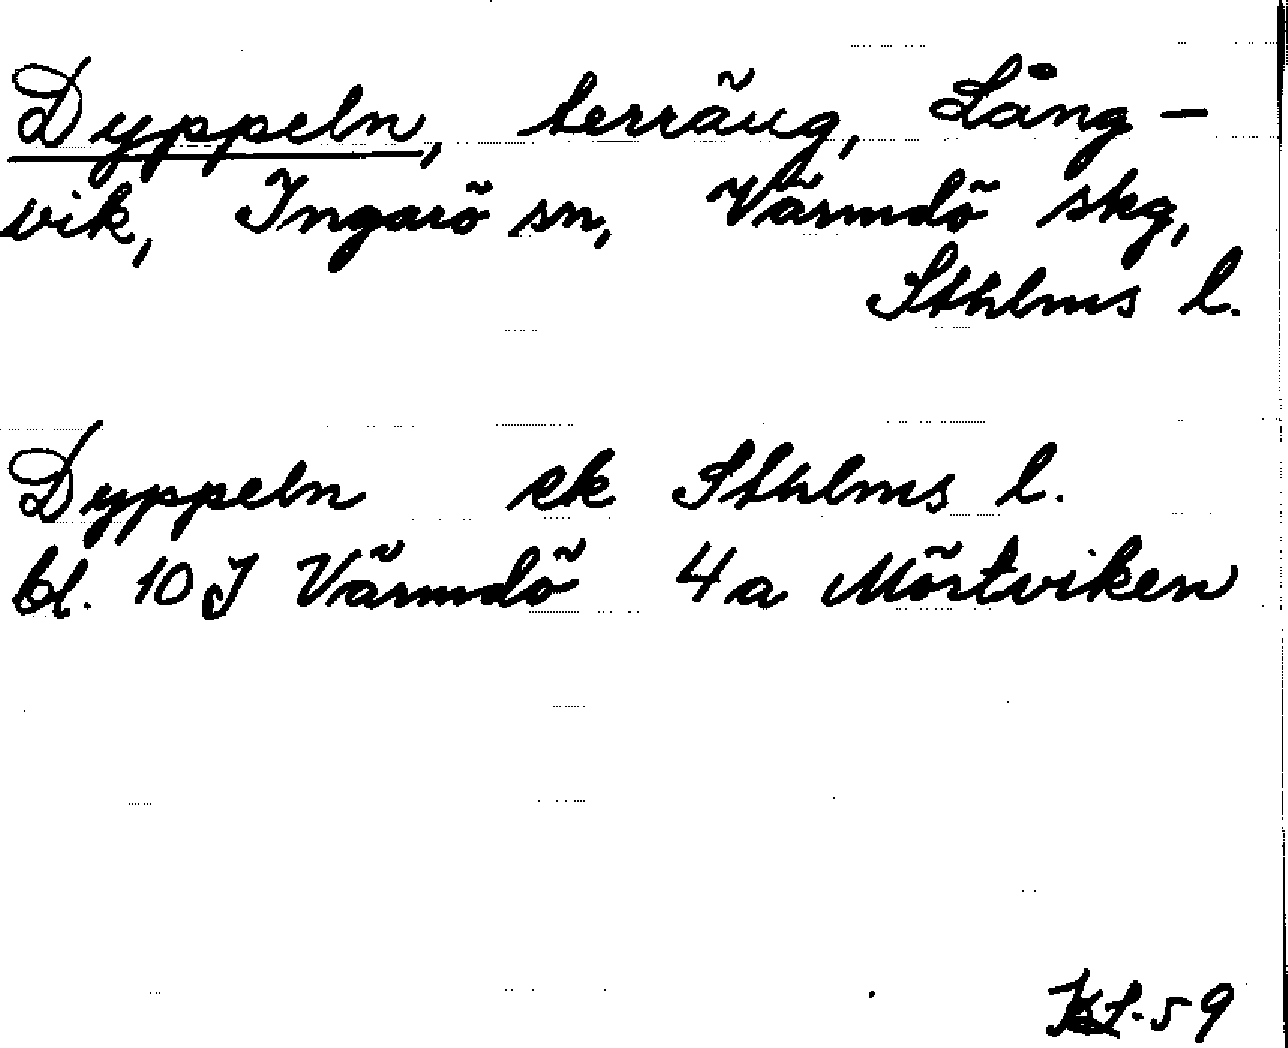 Dyppeln, terräng, Lång-
vik, Ingarö sn, Värmdö skg,
Sthlms l.
Dyppeln ek Sthlms l.
bl. 10J Värmdö 4a Mörtviken
59